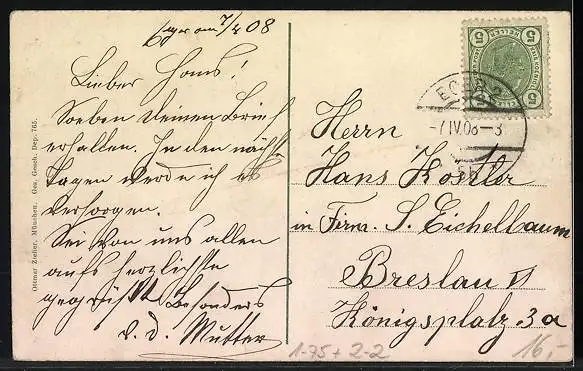 Eger am 7/4 08
Lieber Hans!
Soeben deinen Brief
erhalten. In den nächst
Tagen werde ich es
versorgen.
Sei von uns allen
aufs herzlichste
gegrüßt besonders
v. d. Mutter
Ottmar Zieher, München. Ges. Gesch. Dep. 785.
5 HELLER 5
EGER 2
-7 IV 08-3
Herrn
Hans Köstler
in Firm. S. Eichelbaum
Breslau V
Königsplatz 3a
1-75+2-2
16,-